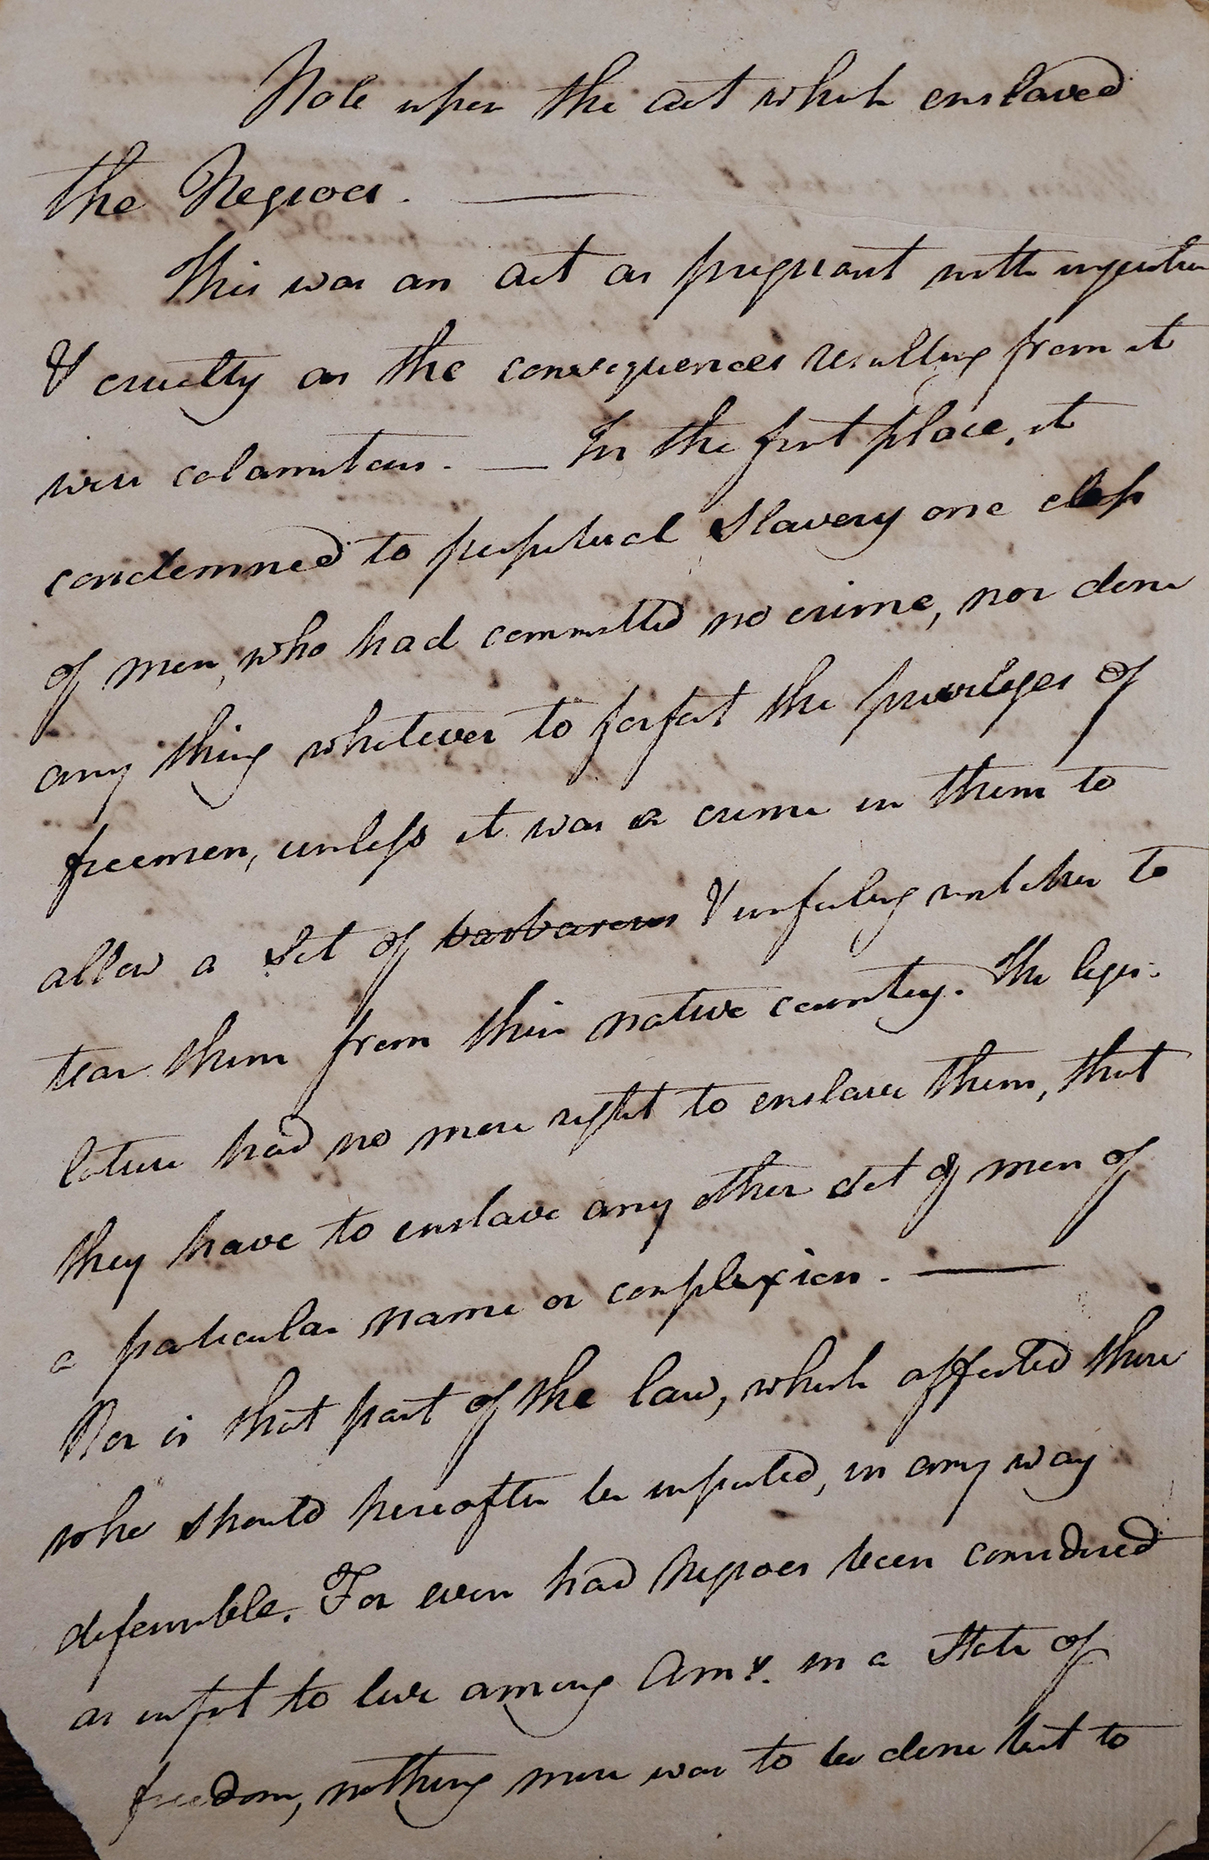 Note upon the act which enslaved
the Negroes. —
This was an act as pregnant with injustice
& cruelty as the consequences resulting from it
were calamitous. — In the first place, it
condemned to perpetual slavery one class
of men, who had committed no crime, nor done
any thing whatever to forfeit the privileges of
freemen, unless it was a crime in them to
allow a set of barbarous & unfeeling wretches to
tear them from their native country. The legis-
lature had no more right to enslave them, that
they have to enslave any other set of men of
a particular name or complexion. —
Nor is that part of the law, which affected those
who should hereafter be imported, in any way
defensible. For even had Negroes been considered
as unfit to live among in a State of
freedom, nothing more was to be done but to